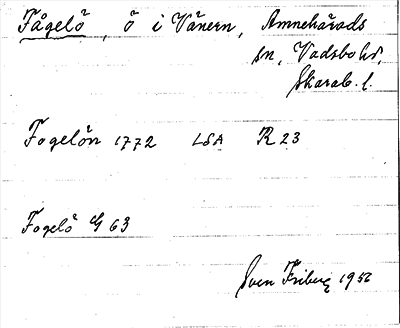 Fågelö, ö i Vänern, Amnehärads
sn, Vadsbo hd,
Skarab. l.
Fogelön 1772 LSA R 23
Fogelö G 63
Sven Friberg 1956